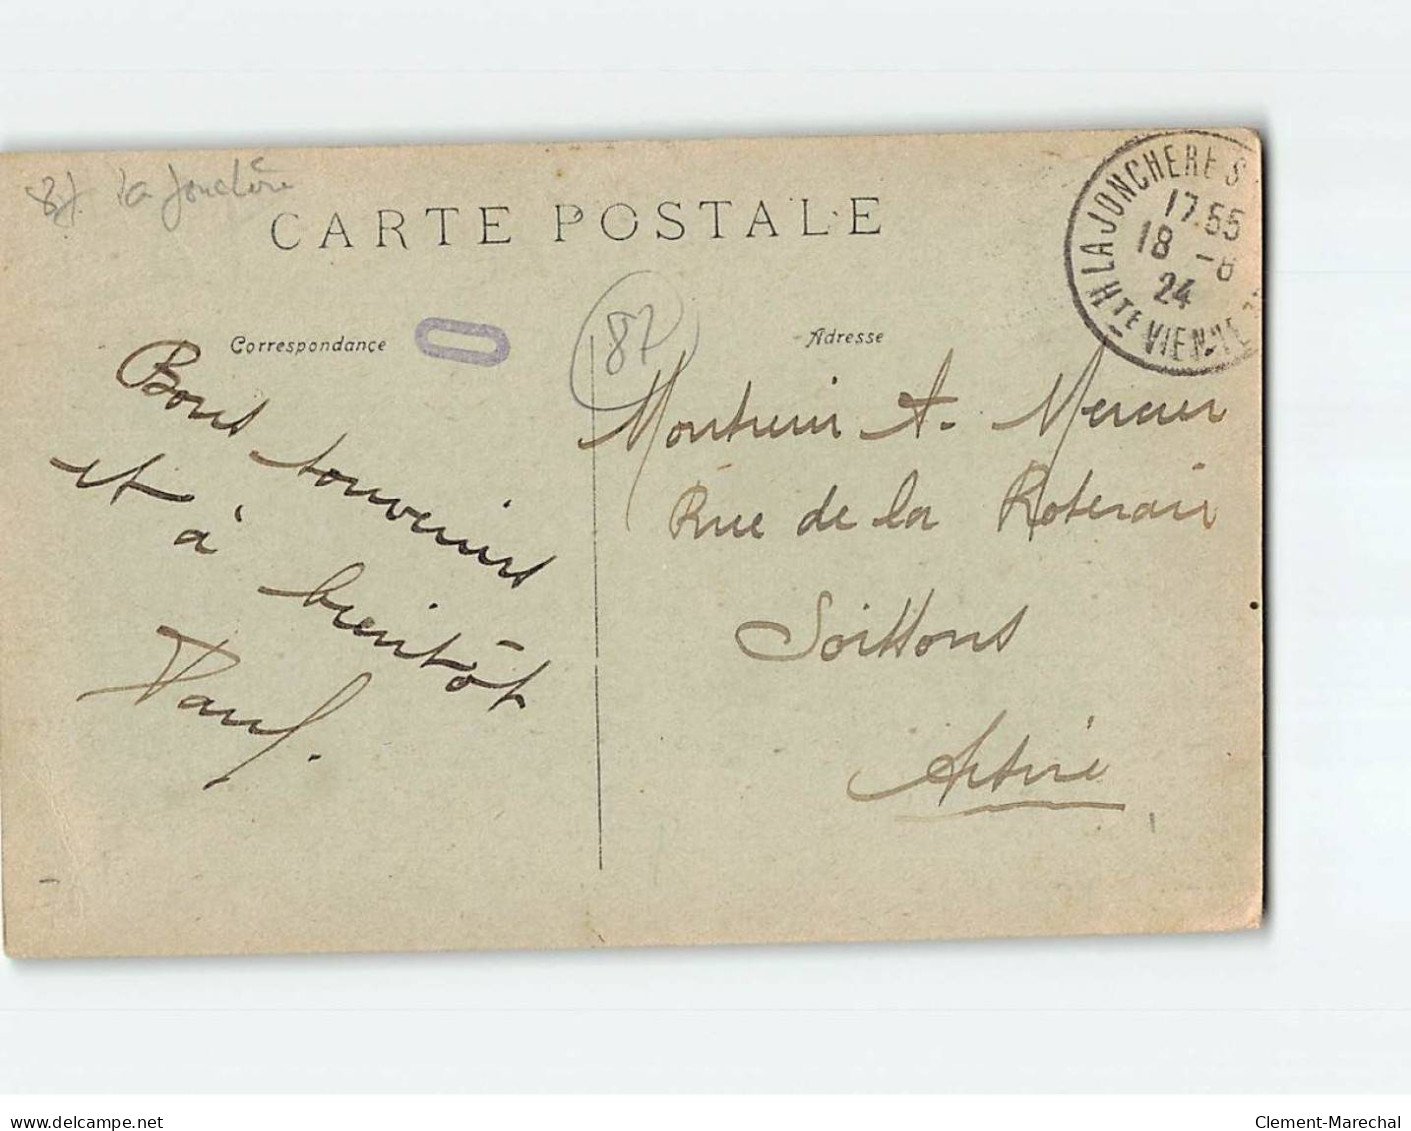 87 La Jonchère
CARTE POSTALE
LA JONCHERE S
17.55
18 -8
24
HTE VIENNE
Correspondance
87
Adresse
Bons souvenirs
et à bientôt
Paul.
Monsieur A. Mercier
Rue de la
Soissons
Aisne
delcampe.net
Clement-Marechal